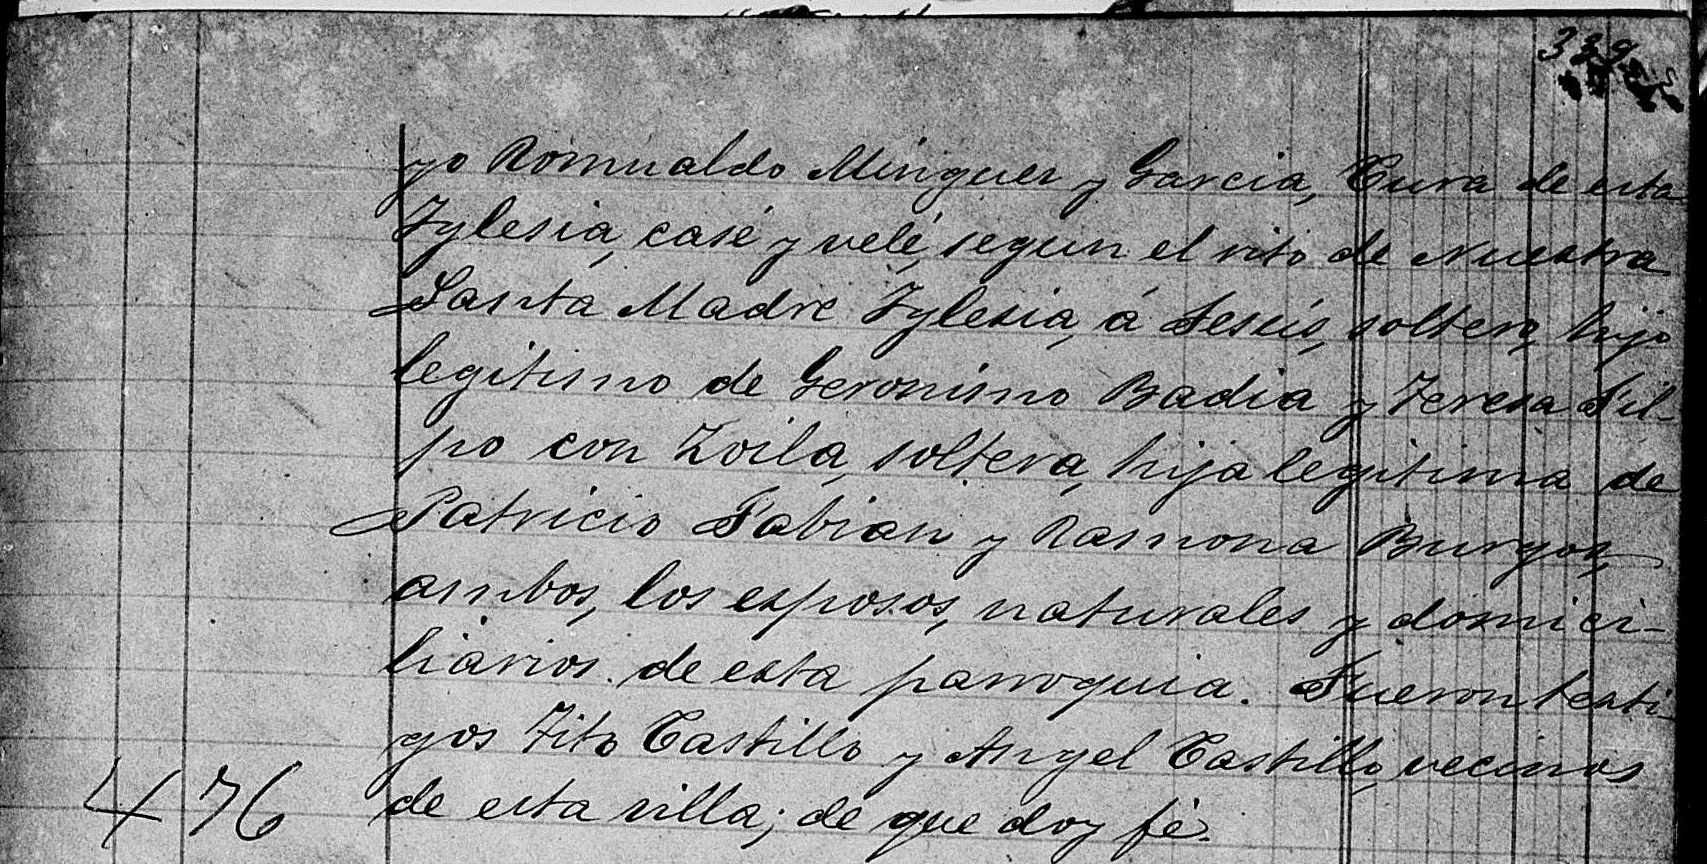 339
yo Romualdo Minguez y Garcia, Cura de esta
Iglesia, casé y velé, segun el rito de Nuestra
Santa Madre Iglesia, á Jesús, soltero, hijo
legitimo de Geronimo Badia y Teresa Sil-
po con Zoila, soltera, hija legitima de
Patricio Fabian y Ramona Burgos,
ambos, los esposos, naturales y domici-
liarios de esta parroquia. Fueron testi-
gos Tito Castillo y Angel Castillo, vecinos
de esta villa; de que doy fé.
476